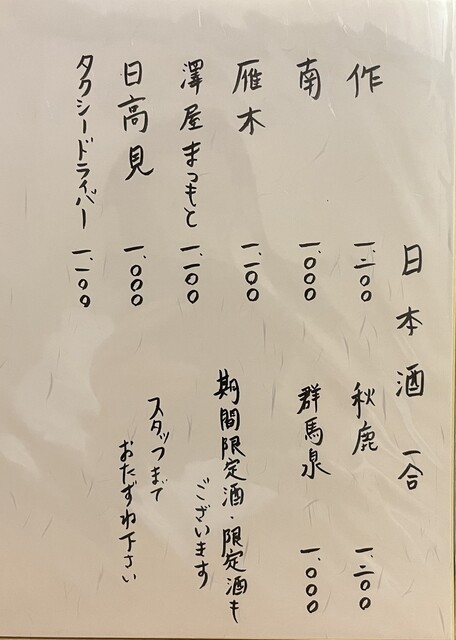 日本酒 一合
作 一、二〇〇
南 一、〇〇〇
雁木 一、一〇〇
澤屋まつもと 一、一〇〇
日高見 一、〇〇〇
タクシードライバー 一、一〇〇
秋鹿 一、二〇〇
群馬泉 一、〇〇〇
期間限定酒・限定酒も
ございます
スタッフまで
おたずね下さい